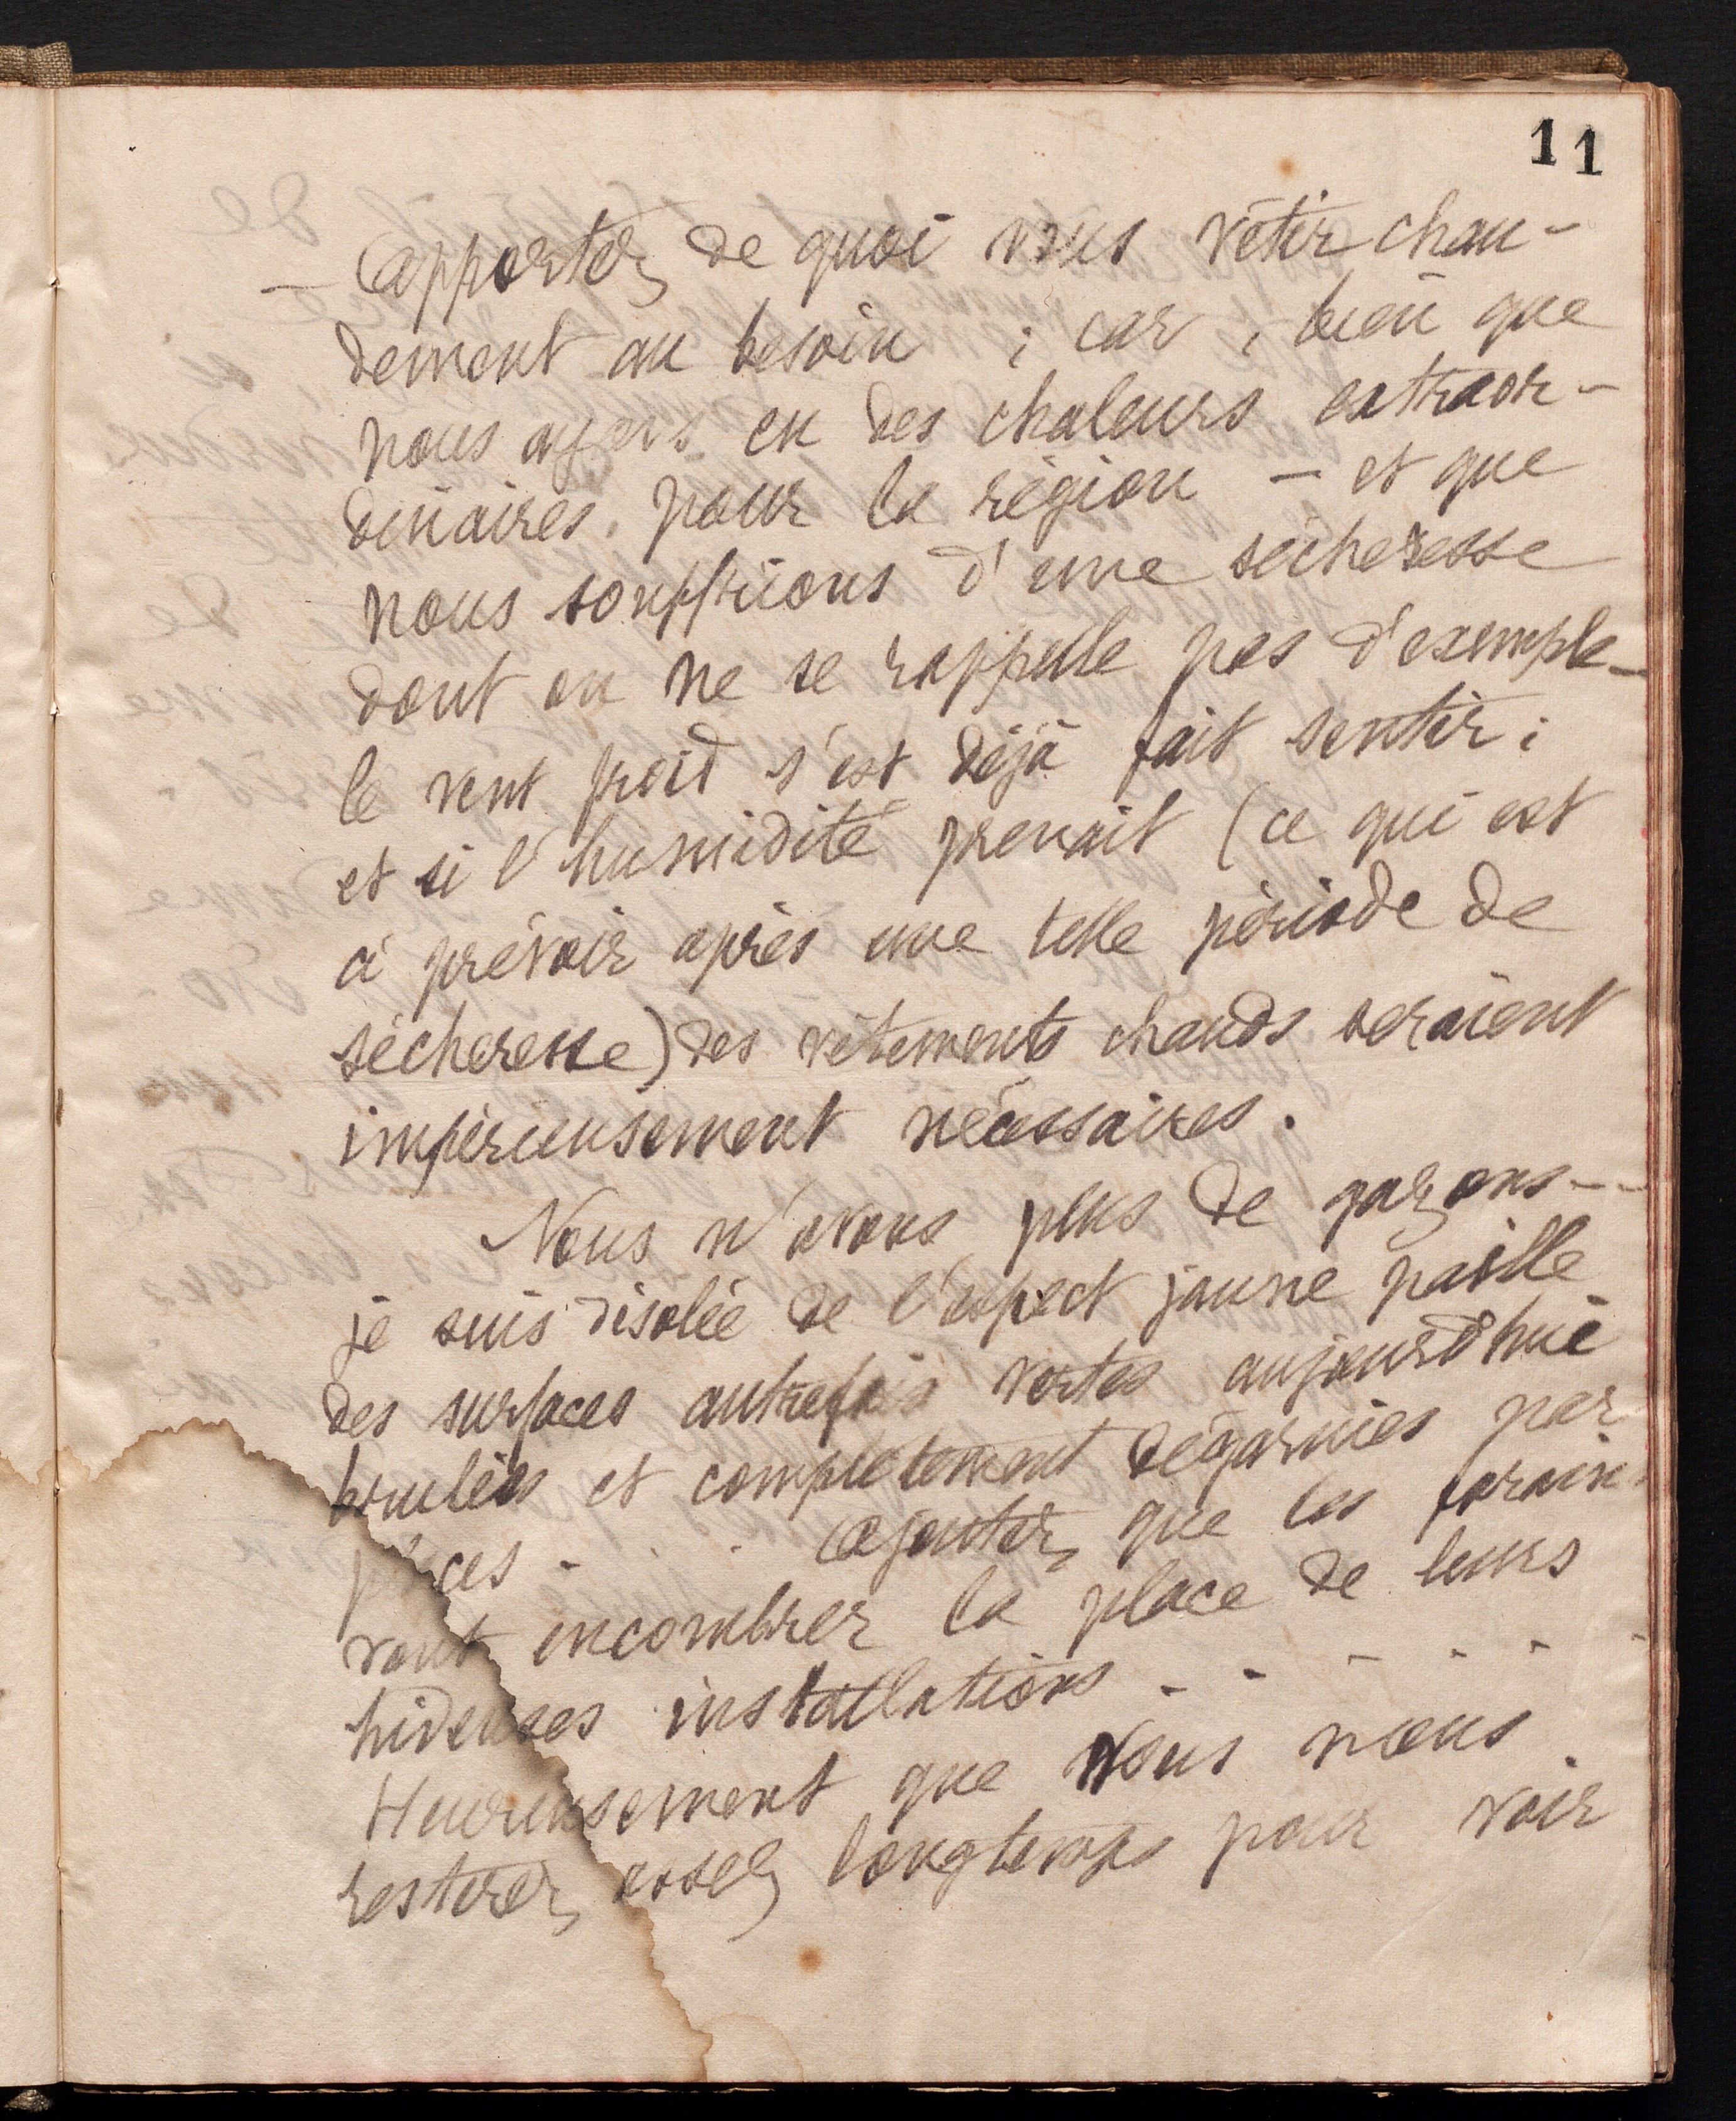 11
— Apportez de quoi vous vêtir chau-
dement au besoin ; car, bien que
nous ayons eu des chaleurs extraor-
dinaires pour la région — et que
nous souffrions d'une sécheresse
dont on ne se rappelle pas d'exemple —
le vent froid s'est déjà fait sentir ;
et si l'humidité prenait (ce qui est
à prévoir après une telle période de
sécheresse) des vêtements chauds seraient
impérieusement nécessaires.
Nous n'avons plus de gazons --
je suis désolée de l'aspect jaune paille
des surfaces autrefois vertes aujourd'hui
brulées et complètement dégarnies par
places . . . Ajoutez que les forains
vont encombrer la place de leurs
hideuses installations - - - - -
Heureusement que vous nous
resterez assez longtemps pour voir